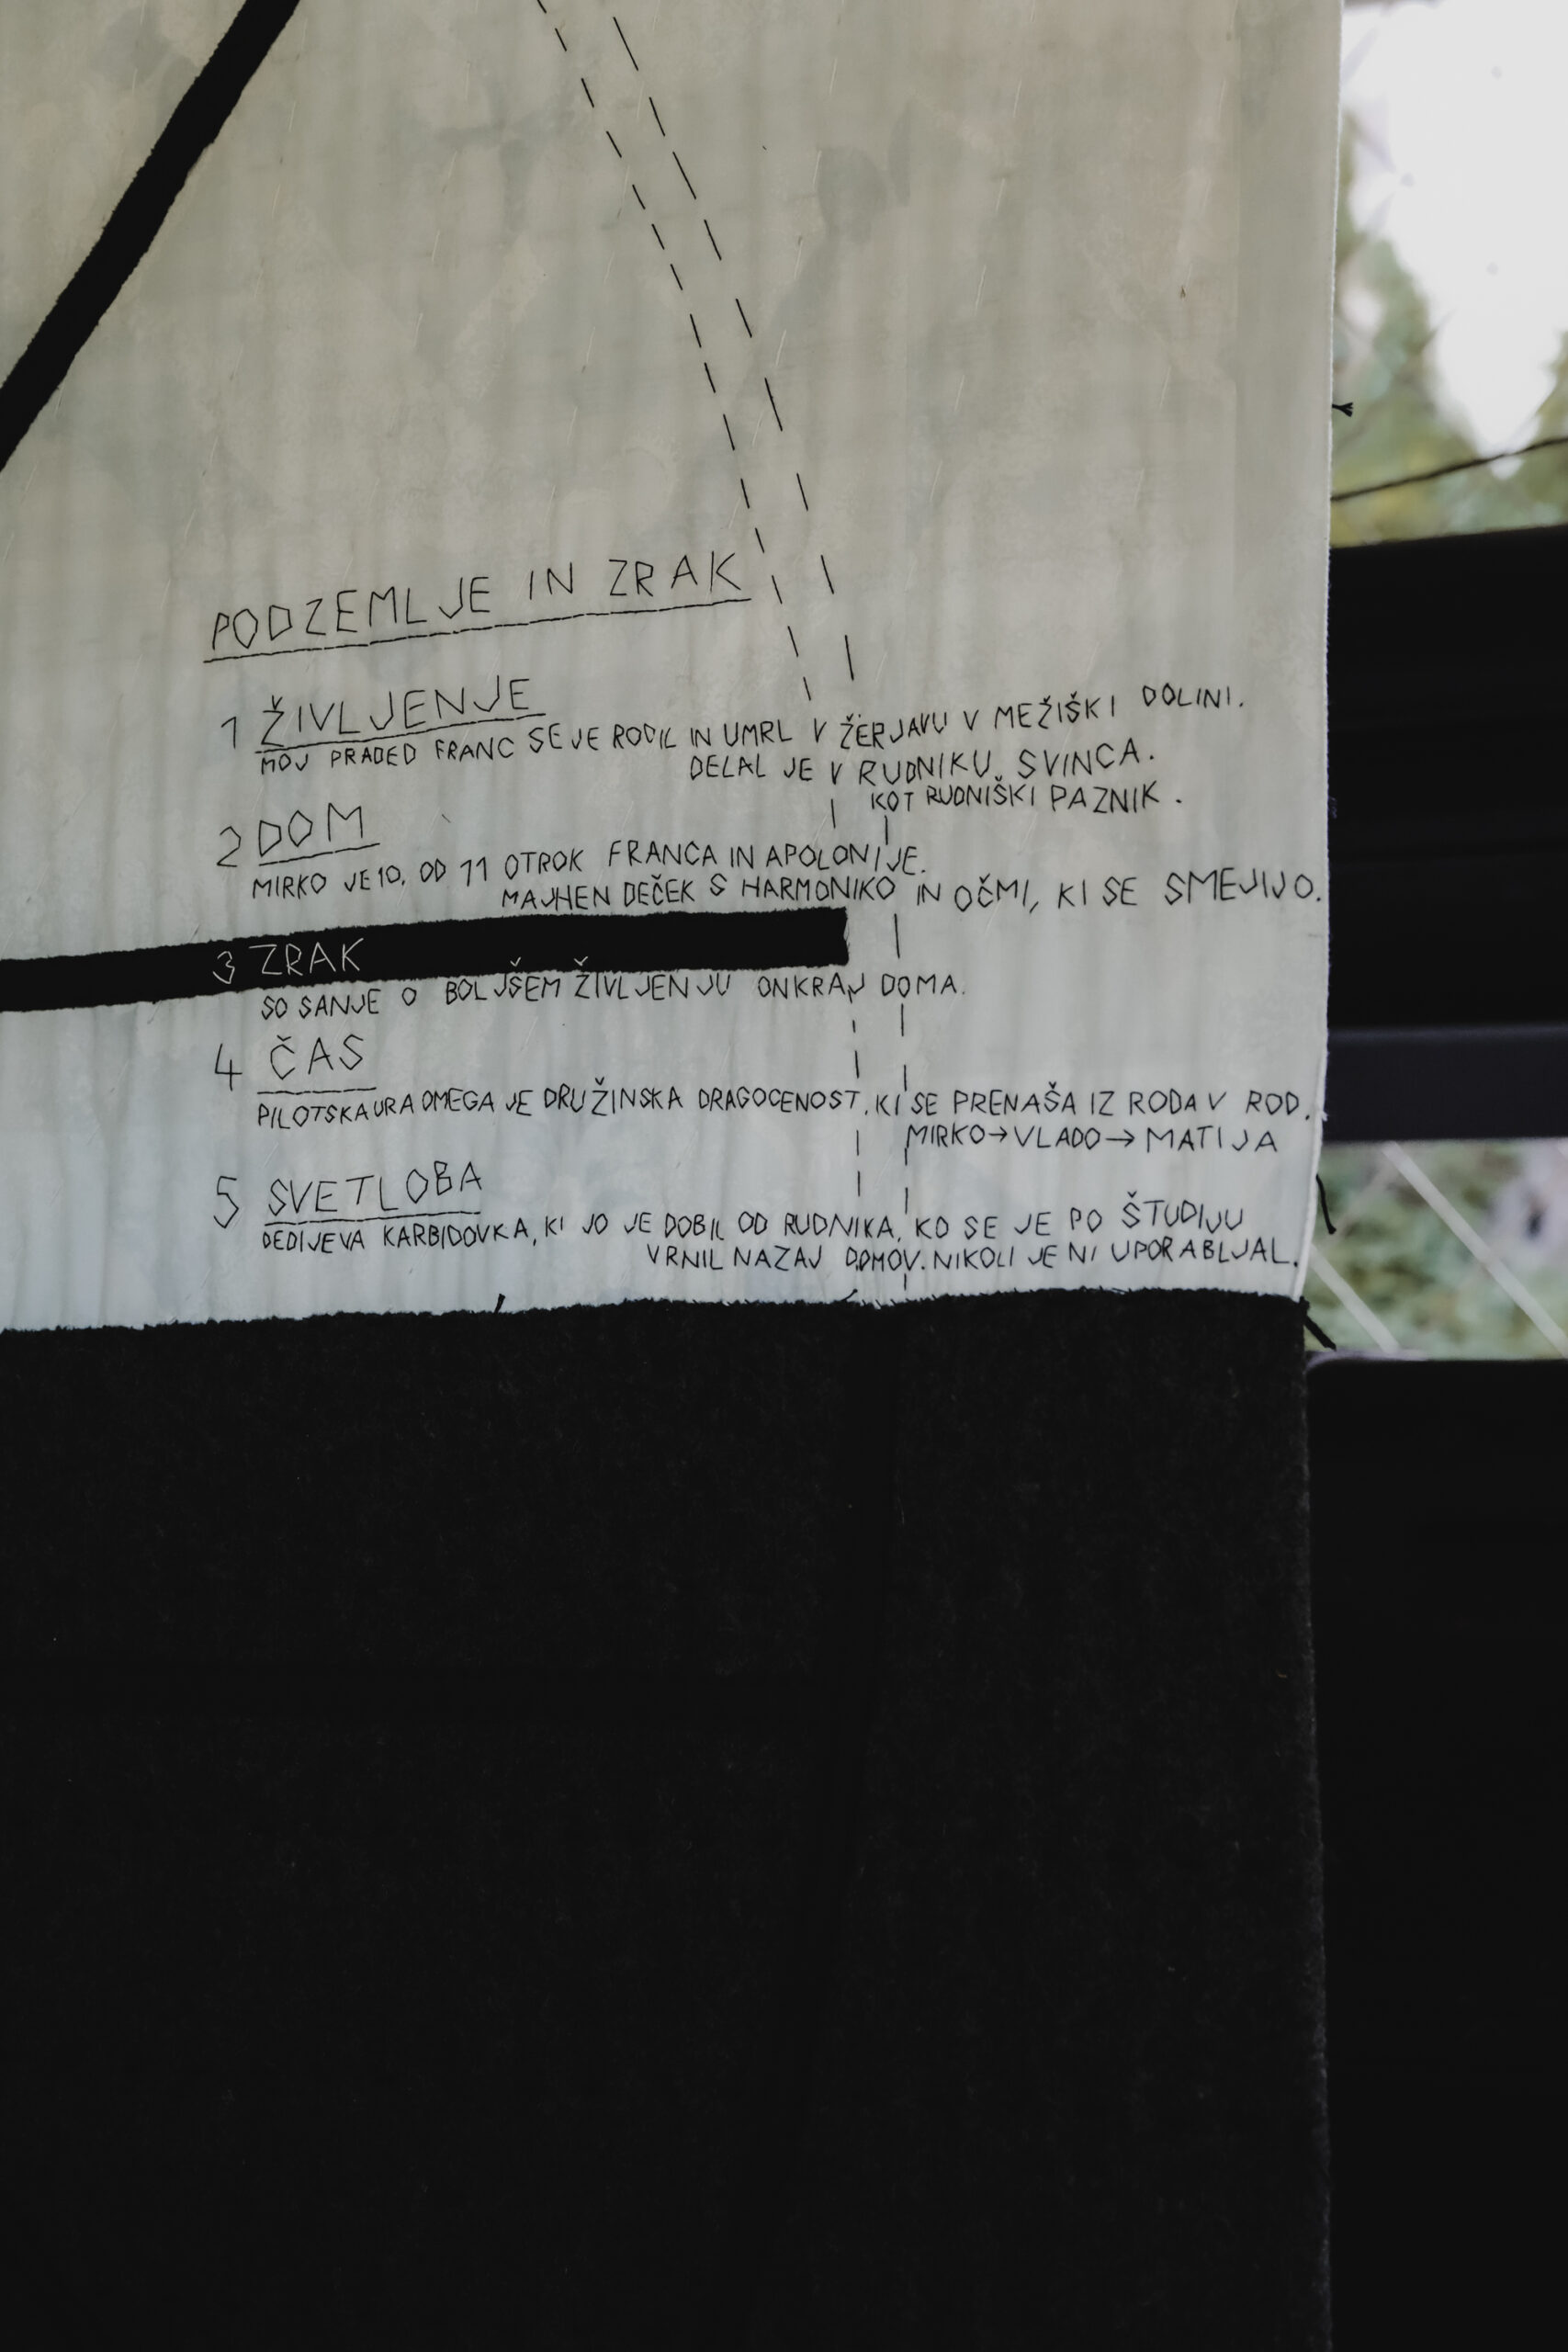 PODZEMLJE IN ZRAK
1 ŽIVLJENJE
MOJ PRADED FRANC SE JE RODIL IN UMRL V ŽERJAVU V MEŽIŠKI DOLINI.
DELAL JE V RUDNIKU SVINCA.
KOT RUDNIŠKI PAZNIK.
2 DOM
MIRKO JE 10. OD 11 OTROK FRANCA IN APOLONIJE.
MAJHEN DEČEK S HARMONIKO IN OČMI, KI SE SMEJIJO.
3 ZRAK
SO SANJE O BOLJŠEM ŽIVLJENJU ONKRAJ DOMA.
4 ČAS
PILOTSKA URA OMEGA JE DRUŽINSKA DRAGOCENOST, KI SE PRENAŠA IZ RODA V ROD.
MIRKO→VLADO→MATIJA
5 SVETLOBA
DEDIJEVA KARBIDOVKA, KI JO JE DOBIL OD RUDNIKA, KO SE JE PO ŠTUDIJU
VRNIL NAZAJ DOMOV. NIKOLI JE NI UPORABLJAL.